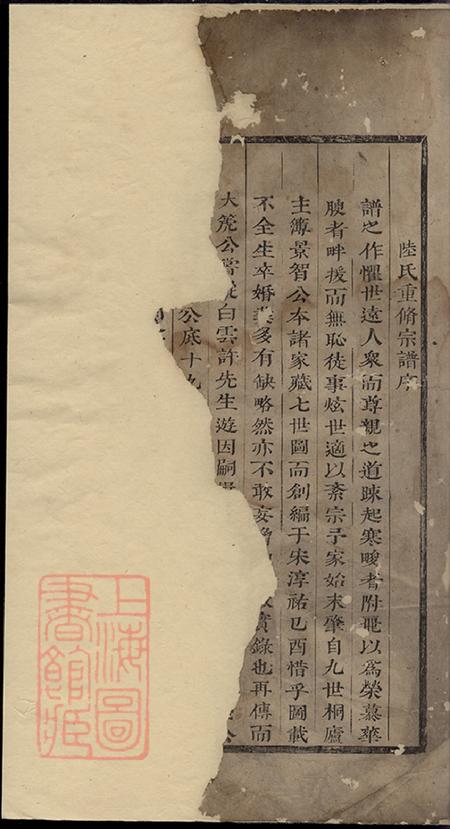 陸氏重脩宗譜序
譜之作懼世遠人衆而尊親之道踈起寒畯者附䰟以爲榮慕華
腴者畔援而無恥徒事炫世適以紊宗予家始末肇自九世桐廬
主簿景智公本諸家藏七世圖而創編于宋淳祐己酉惜乎圖載
不全生卒婚塟多有缺略然亦不敢妄 實錄也再傳而
大 公 白雲許先生遊因嗣
公底十九
上海圖
書館